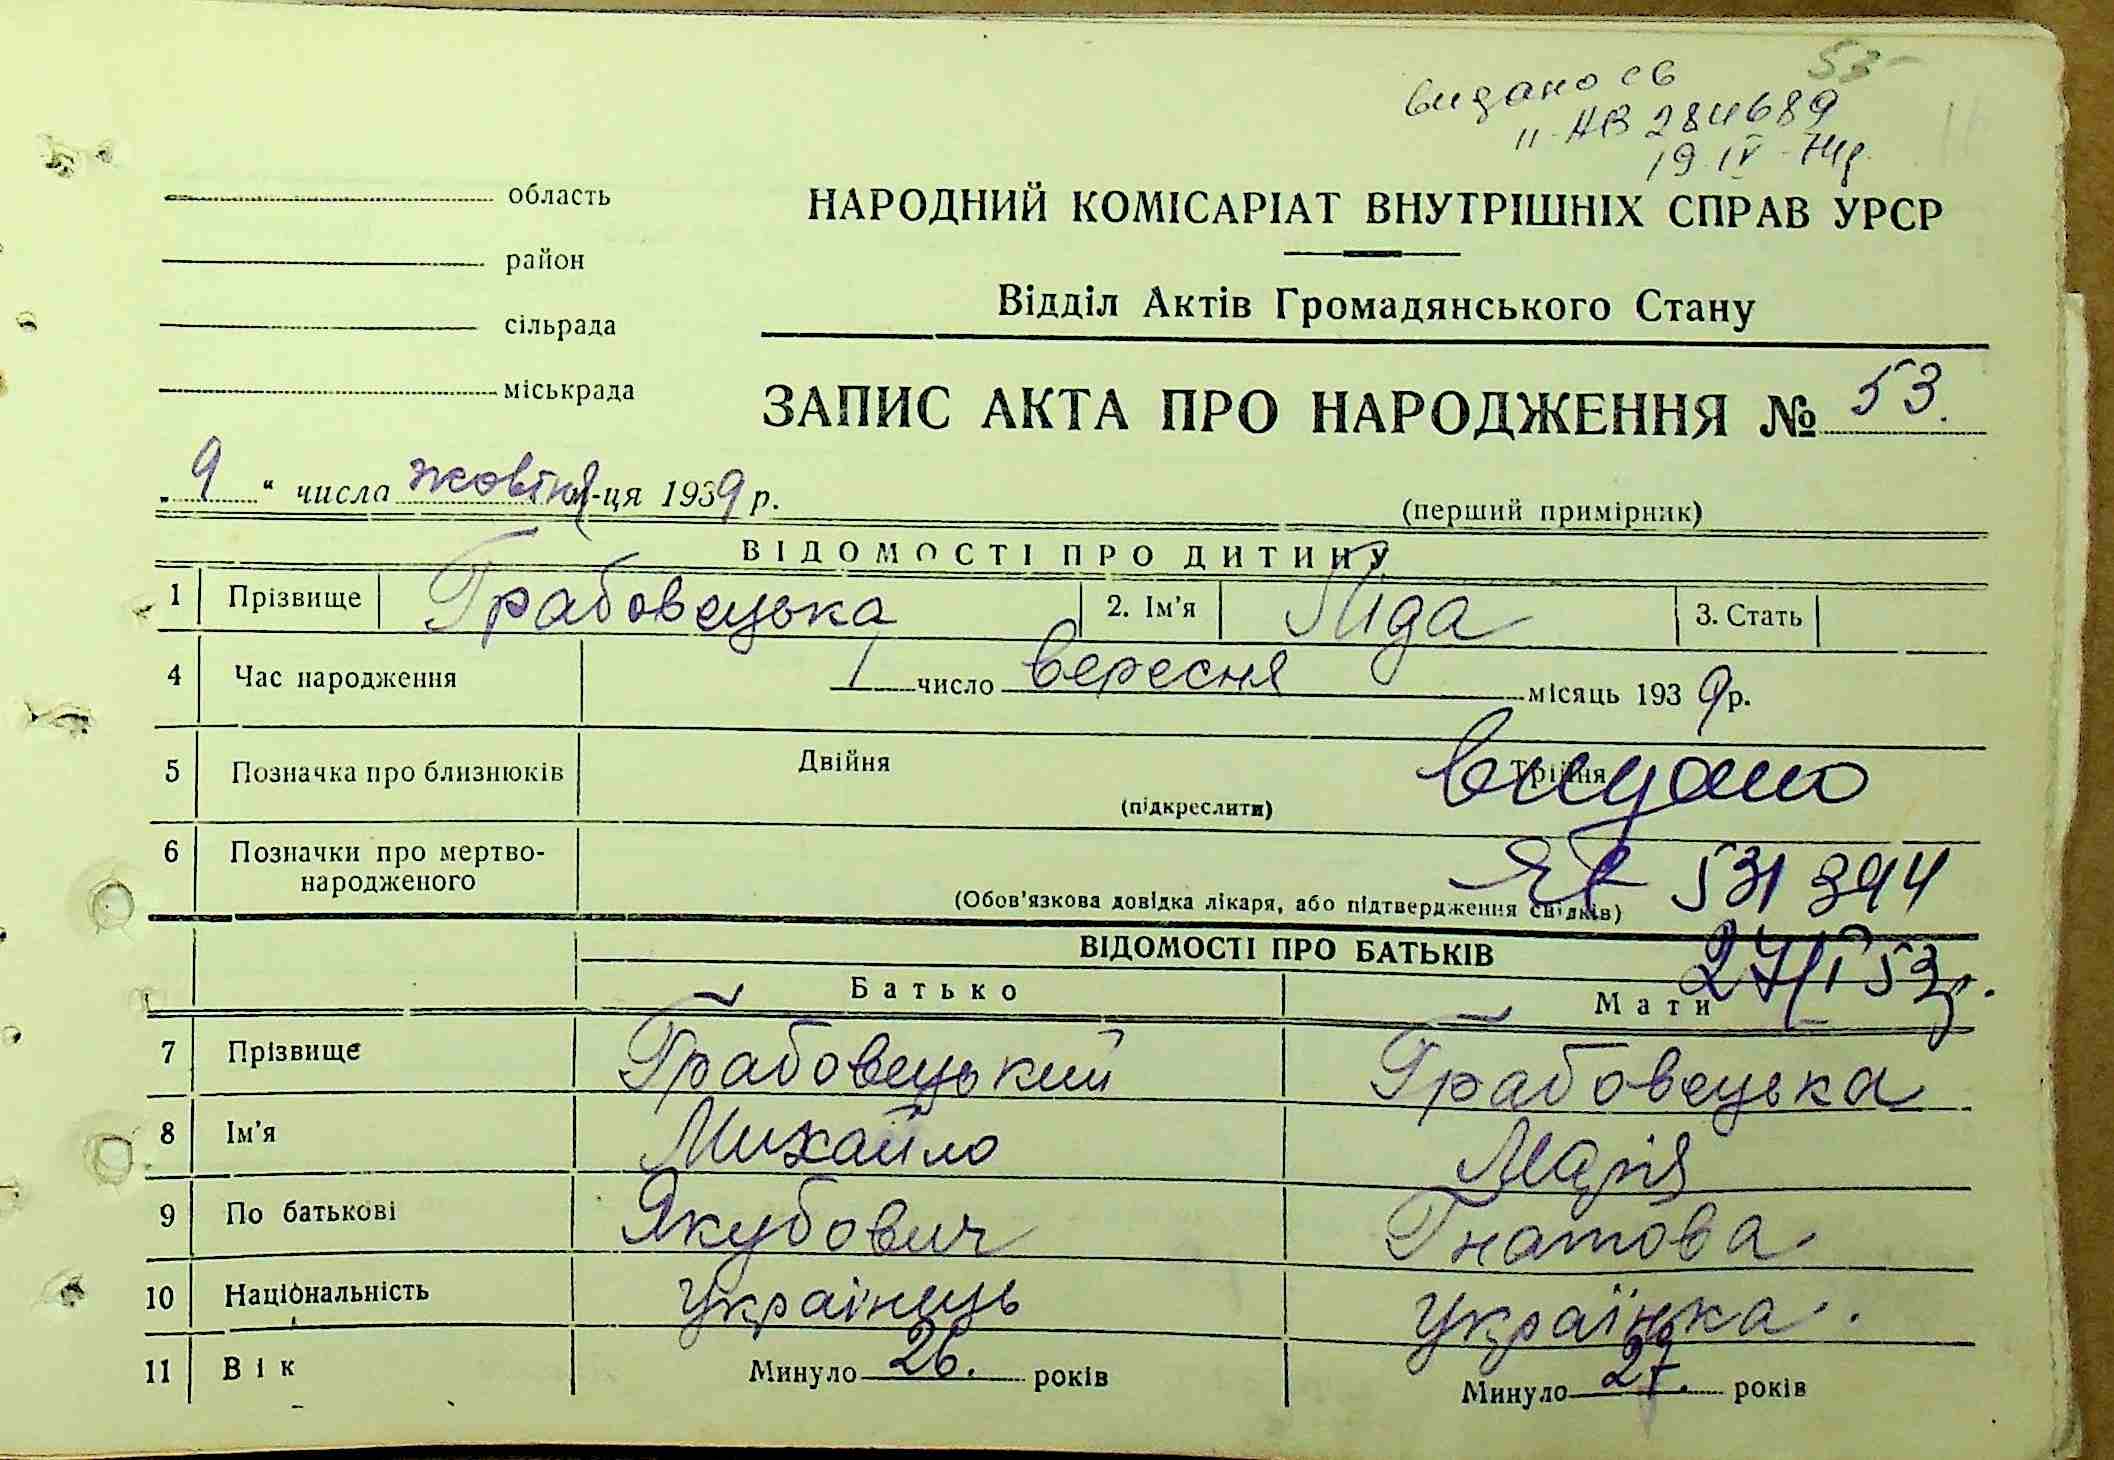 53
видано св
ІІ-АВ 284689
19 IV-74р.
область
район
сільрада
міськрада
НАРОДНИЙ КОМІСАРІАТ ВНУТРІШНІХ СПРАВ УРСР
Відділ Актів Громадянського Стану
ЗАПИС АКТА ПРО НАРОДЖЕННЯ № 53.
„ 9 “ числа жовтня м-ця 1939 р.
(перший примірник)
ВІДОМОСТІ ПРО ДИТИНУ
1 Прізвище Грабовецька 2. Ім'я Ліда 3. Стать
4 Час народження 1 число вересня місяць 1939 р.
5 Позначка про близнюків Двійня Трійня
(підкреслити)
видано
6 Позначки про мертво-
народженого
(Обов'язкова довідка лікаря, або підтвердження свідків)
531394
ВІДОМОСТІ ПРО БАТЬКІВ
Батько Мати
7 Прізвище Грабовецький Грабовецька
8 Ім'я Михайло Марія
9 По батькові Якубович Гнатова
10 Національність українець українка.
11 Вік Минуло 26. років Минуло 27. років